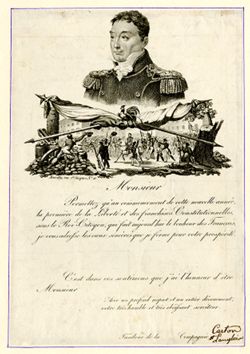 Monsieur
Permettez qu'au commencement de cette nouvelle année,
la première de la Liberté et des franchises Constitutionnelles,
sous le Roi Citoyen, qui fait aujourd'hui le bonheur des Français,
je vous adresse les vœux sincères que je forme pour votre prospérité.
C'est dans ces sentimens que j'ai l'honneur d'être
Monsieur
Avec un profond respect et un entier dévouement,
votre très humble et très obéissant serviteur
de la Compagnie
Carton